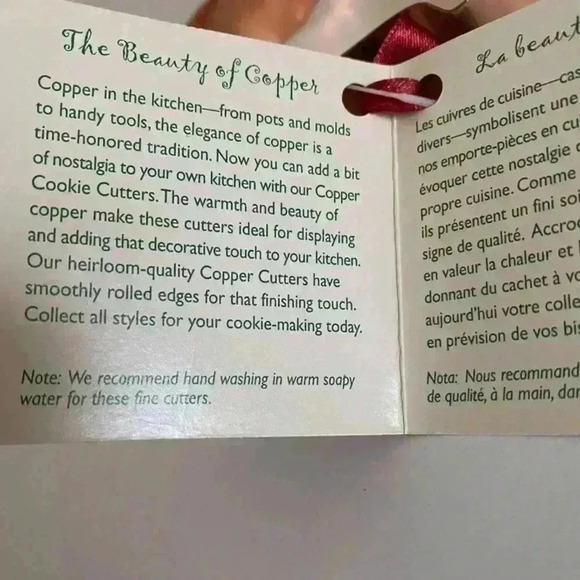 The Beauty of Copper
Copper in the kitchen—from pots and molds
to handy tools, the elegance of copper is a
time-honored tradition. Now you can add a bit
of nostalgia to your own kitchen with our Copper
Cookie Cutters. The warmth and beauty of
copper make these cutters ideal for displaying
and adding that decorative touch to your kitchen.
Our heirloom-quality Copper Cutters have
smoothly rolled edges for that finishing touch.
Collect all styles for your cookie-making today.
Note: We recommend hand washing in warm soapy
water for these fine cutters.
La beaut
Les cuivres de cuisine—cas
divers—symbolisent une
nos emporte-pièces en cu
évoquer cette nostalgie
propre cuisine. Comme
ils présentent un fini soi
signe de qualité. Accro
en valeur la chaleur et
donnant du cachet à vo
aujourd'hui votre colle
en prévision de vos bis
Nota: Nous recommand
de qualité, à la main, dan